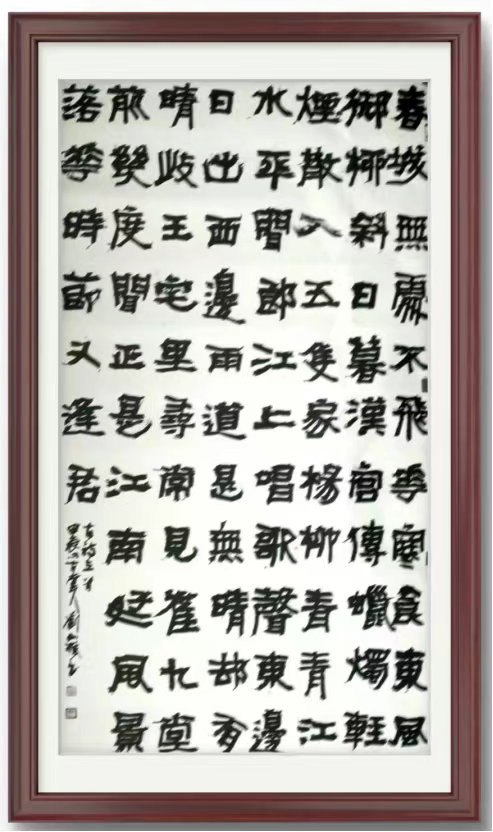 春城無處不飛華寒食東風
御柳斜日暮漢宮傳蠟燭輕
煙散入五隻家楊柳青青江
水平聞郎江上唱歌聲東邊
日出西邊雨道是無晴却有
晴岐王宅里尋常見崔九堂
前幾度聞正是江南好風景
落華時節又逢君
古詩三首